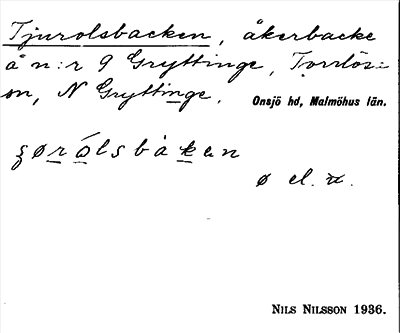 Tjurolsbacken, åkerbacke
å n:r 9 Gryttinge,
N Gryttinge. Onsjö hd, Malmöhus län.
ø el.
NILS NILSSON 1936.